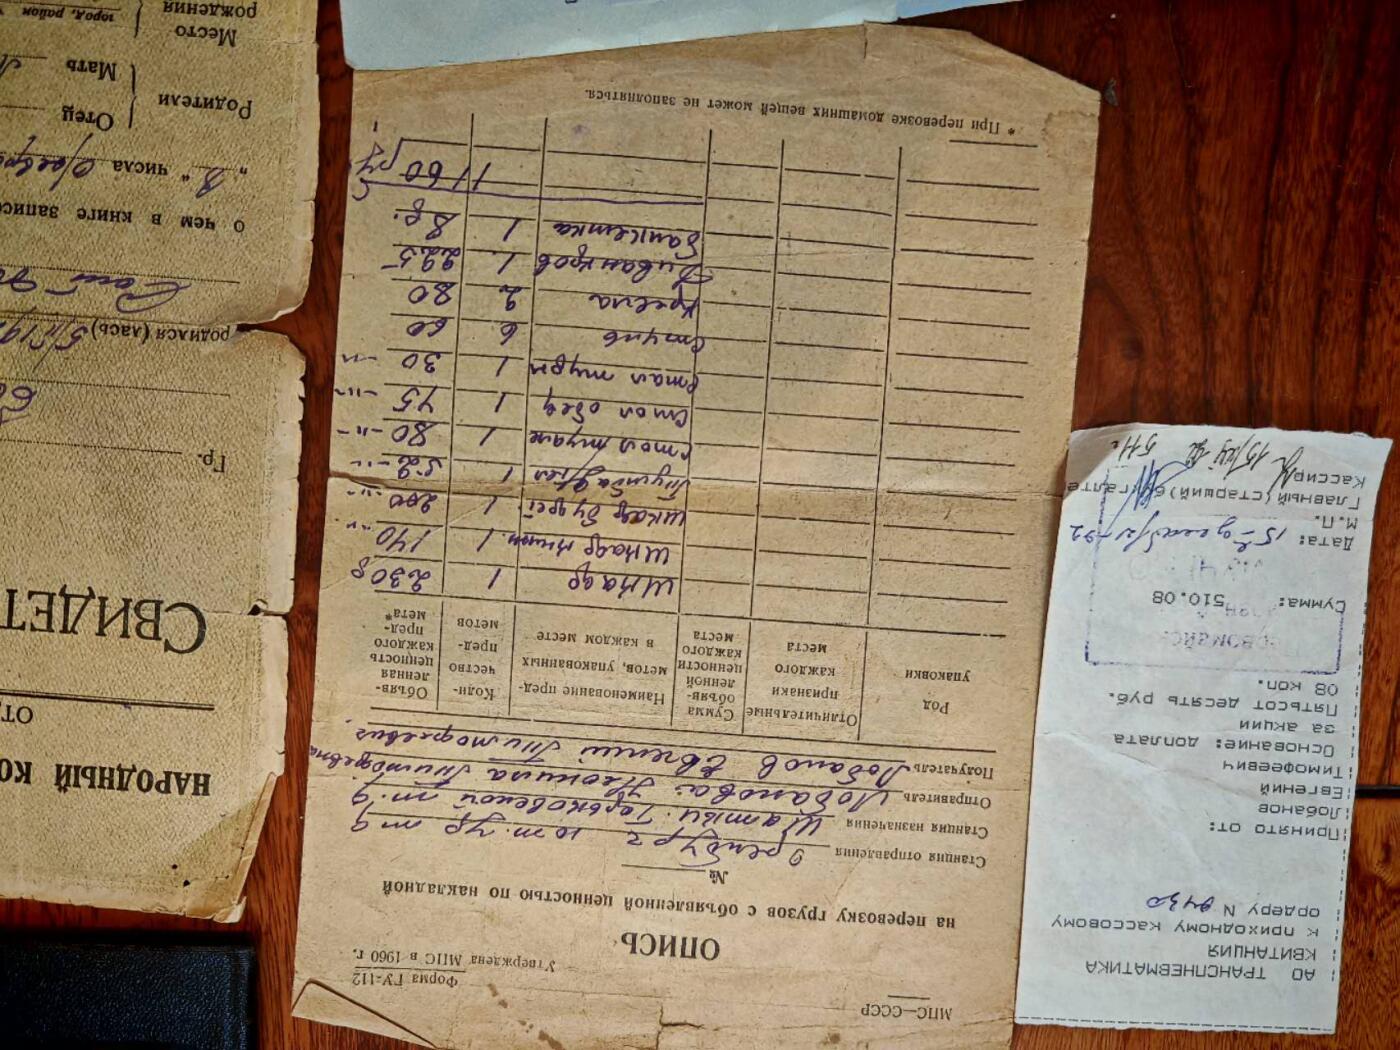 МПС—СССР
Форма ГУ-112
Утверждена МПС в 1960 г.
ОПИСЬ
на перевозку грузов с объявленной ценностью по накладной
№
Станция отправления Оренбург 2 ют. ур ж.д
Станция назначения Шатки Горьковской ж.д
Отправитель Лобанова Неонила Тимофеевна
Получатель Лобанов Евгений Тимофеевич
Род упаковки | Отличительные признаки каждого места | Сумма объяв- ленной ценности каждого места | Наименование пред- метов, упакованных в каждом месте | Коли- чество пред- метов | Объяв- ленная ценность каждого пред- мета*
Шкаф 1 230 р
Шкаф книжн. 1 140 -"-
Шкаф буфет 1 200 -"-
Тумба 1 52 -"-
Стол туал 1 80 -"-
Стол обед 1 45 -"-
Стол журн 1 30 -"-
Стул 6 60
Кресла 2 80
Диван кров 1 225
банкетка 1 8 р.
1160 ру
* При перевозке домашних вещей может не заполняться.
АО ТРАНСПНЕВМАТИКА
КВИТАНЦИЯ
к приходному кассовому
ордеру N
Принято от:
Лобанов
Евгений
Тимофеевич
Основание: доплата
за акции
Пятьсот десять руб.
08 коп.
Сумма: 510.08
Дата:
М.П.
Главный (старший) бухгалте
Кассир
НАРОДНЫЙ КО
ОТ
СВИДЕТ
Гр.
родился (лась)
о чем в книге записи
" числа
Родители
Отец
Мать
Место
рождения
город, район